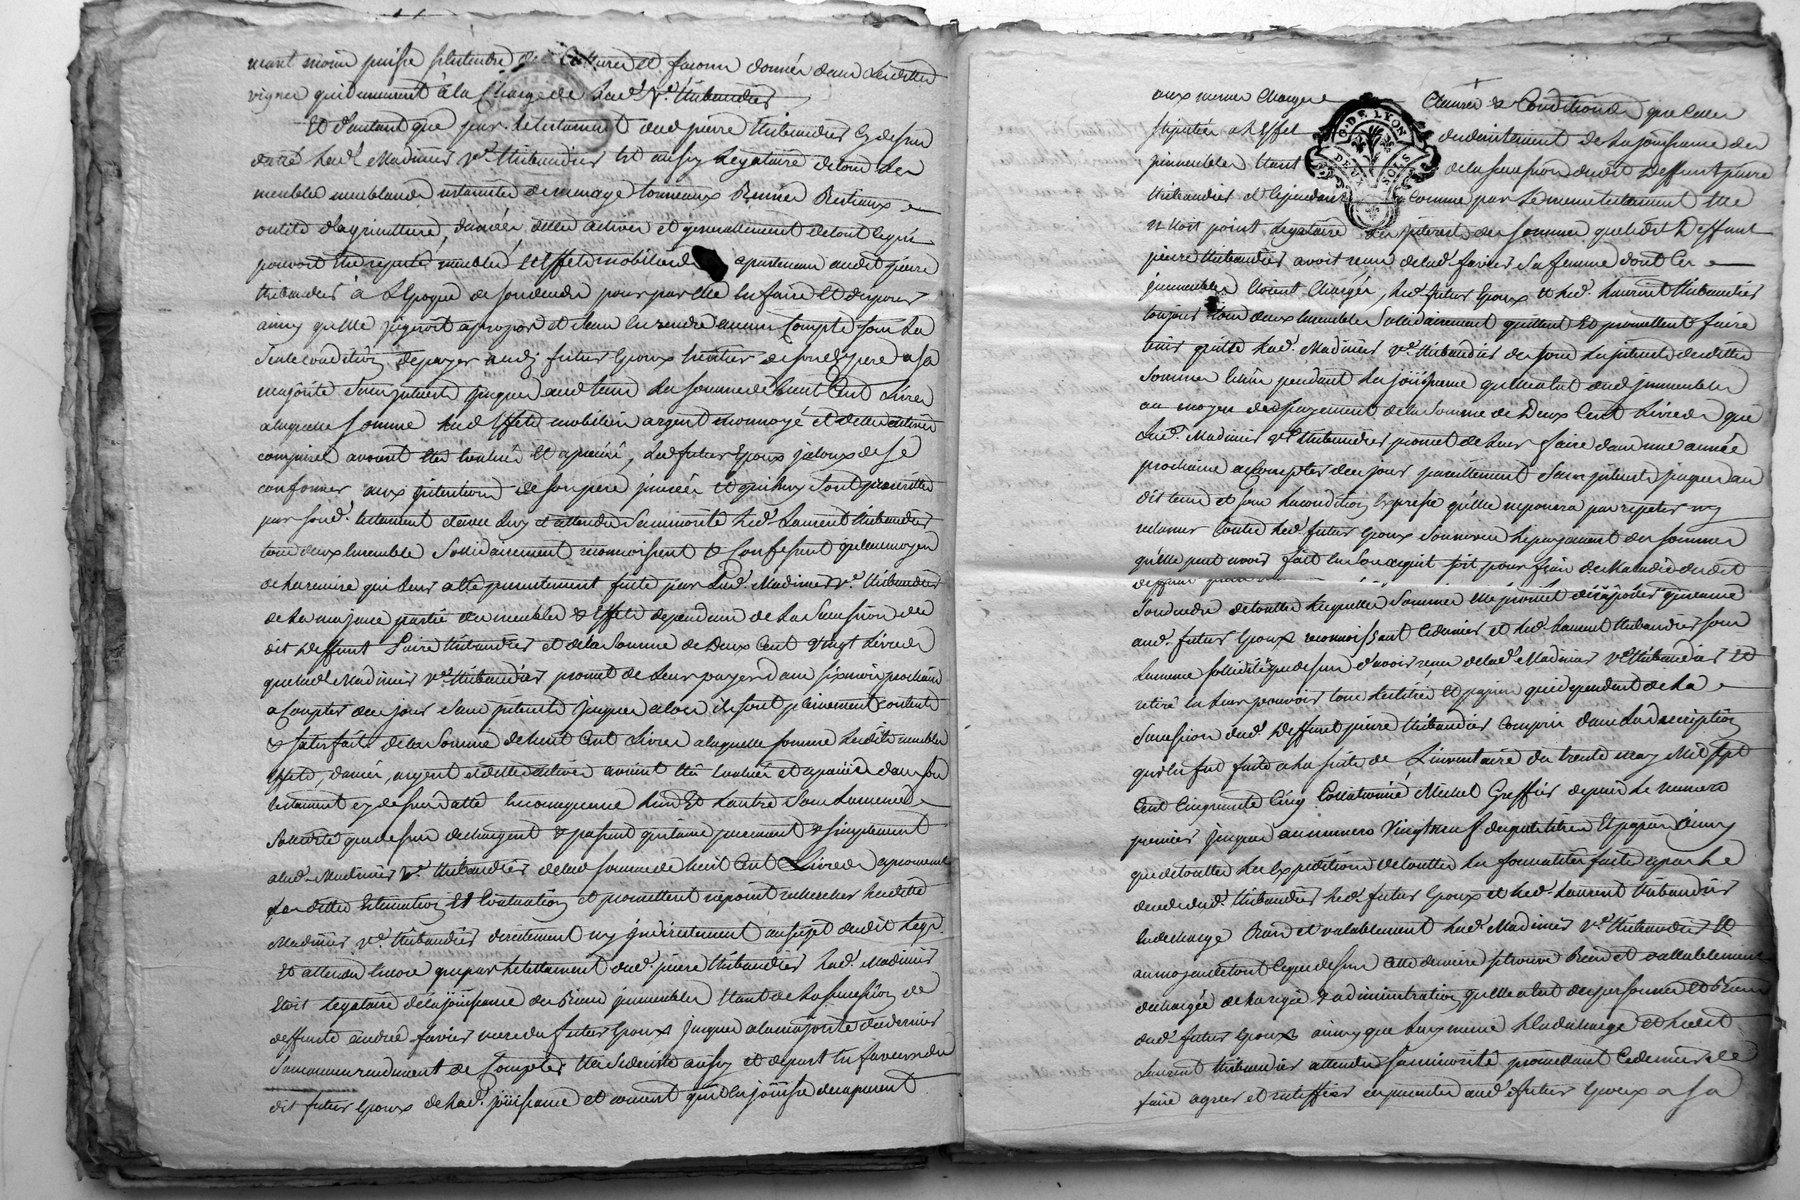 neant moin puisse pretendre de Cultures et facons donnée dans lesdittes
vignes qui demeurent a la Charge de lad.e V.e Thibaudier
Et d'autant que par le testament dud pierre thibaudier cy dessus
datté lad.e Madinier v.e thibaudier Est aussy Legataire de tous les
meubles meublands ustancile de menage tonneaux Benne Bestiaux
outils d'agriculture, danrée, dettes actives et generallement de tout ce qui
pouvoit etre reputé meubles et Effets mobiliaires apartenans audit pierre
thibaudier à L'Epoque de son deceds pour par elle En faire et disposer
ainsy qu'elle jugeroit apropos et sans En rendre aucun Compte sous La
Seule condition de payer aud futur Epoux heritier de sondit pere a sa
majorité sans jnterest jusques aud tems La somme de huit Cent Livres
a laquelle somme lesd Effets mobiliers argent monnoyé et dettes actives
comprises avoient Eté Evalués Et apretiés, Led futur Epoux jaloux de se
conformer aux jntentions de son pere
par sond.t testament attendu sa minorité led.t Laurent thibaudier
tous deux Ensemble Sollidairement reconnoissent & Confessent qu'au moyen
de la remise qui Leur a Eté presentement faite par lad.e Madinier v.e thibaudier
de La majeure partie des meubles & Effets dependans de La Succession du
dit deffunt Pierre thibaudier et de la Somme de Deux Cent vingt Livres
que lad.e Madinier v.e thibaudier promet de Leur payer dans six mois prochains
a Compter de ce jour sans jnterests jusques alors ils sont pleinement Contents
& satisfaits de la Somme de huit Cent Livres a laquelle somme lesdits meubles
Effets, danrée, argent et dettes actives avoient Eté Evalués et apretiés dans son
testament cy dessus datté En consequence L'un Et L'autre sous La meme
Solidité que dessus dechargent & passent quitance purement & simplement
a lad.e Madinier v.e thibaudier de lad somme de huit Cent Livres aprouvent
lesdittes Estimation Et Evaluation et promettent ne point rechercher laditte
Madinier v.e thibaudier directement ny jndirectement au sujet dudit Legs
Et attendu Encore que par le testament dud.t pierre thibaudier lad.e Madinier
Etoit Legataire de la joüissance des Biens jmmeubles Etant de La Succession de
deffunte andrée favier mere du futur Epoux jusques a la majorité de ce dernier
dit futur Epoux de lad.e joüissance et consent qu'il En joüisse des apresent
aux memes Charges Clauses & Conditions que Celles
Stipulées a l'Effet du deistement de La joüissance des
jmmeubles Etant de la Succession dudit Deffunt pierre
thibaudier Et Comme par Le meme testament Elle
n'étoit point Legataire des jnterests des sommes que ledit Deffunt
pierre thibaudier avoit reçu de lad. favier Sa femme dont Ces
jmmeubles Etoient Chargés, led. futur Epoux et led. Laurent thibaudier
toujours tous deux Ensemble Sollidairement quittent Et promettent faire
tenir quitte lad.e Madinier v.e thibaudier de tous Les jnterests desdittes
Sommes
au moyen du payement de la Somme de Deux Cent Livres que
Lad.e Madinier v.e thibaudier promet de Leur faire dans une année
prochaine a Compter de ce jour pareillement Sans jnterests jusques au
dit tems et sous La condition Expresse qu'elle ne pourra pas repeter ny
reclamer Contre led. futur Epoux Sonneveu Le payement des sommes
qu'elle peut avoir fait En Son acquit soit pour frais de Maladie dudit
deffunt
Son deceds de toutes Lesquelles Sommes
aud. futur Epoux reconnoissant Ce dernier et led. Laurent thibaudier sous
La meme sollidité que dessus d'avoir reçu de lad.e Madinier v.e thibaudier Et
retiré En Leur pouvoir tous Les titres Et papiers qui dependent de La
Succession dud.t Deffunt pierre thibaudier Compris dans La description
qui En fut faite a La suite de L'inventaire du trente may Mil Sept
Cent Cinquante Cinq Collationné Michel Greffier depuis Le numero
premier jusques au numero Vingt neuf desquels titres Et papiers ainsy
que de toutes Les Expeditions de toutes Les formalités faite apres Le
deceds dud. thibaudier led. futur Epoux et led. Laurent thibaudier
En decharge Bien et valablement lad.e Madinier v.e thibaudier Et
au moyen de tout Ce que dessus Cette derniere se trouve Bien et vallablement
dechargée de La regie & administration qu'elle a Eut des personnes Et Biens
dud.t futur Epoux ainsy que Luy meme L'En decharge et ledit
Laurent thibaudier attendu sa minorité promettant Ce dernier de Le
faire agréer et ratiffier en presence aud. futur Epoux a sa
G. DE LYON
DEUX SOLS